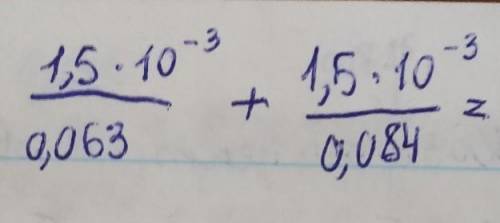 1,5 · 10⁻³ / 0,063 + 1,5 · 10⁻³ / 0,084 =